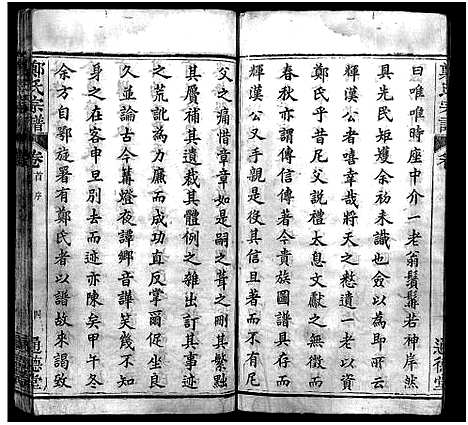 曰唯唯時座中介一老翁鬚鬢若神岸然
具先民矩矱余初未識也以為即所云
輝漢公者嘻幸哉將天之憗遺一老以資
鄭氏乎昔尼父說禮太息文獻之無徵而
春秋亦傳信傳著今貴族圖譜具存而
輝漢公又手親是役其信且著而不有尼
父之痛惜章章如是嗣之葺之刪其繁黜
其屬補其遺裁其體例之雜出訂其事迹
之荒訛為力廉而成功反掌爾促坐良
久並論古今篝燈夜譚鄉音譁笑幾不知
身之在客中旦別去而迹亦陳矣甲午冬
余方自鄂旋署有鄭氏者以譜故來謁攷
鄭氏宗譜
卷首 序
四
通德堂